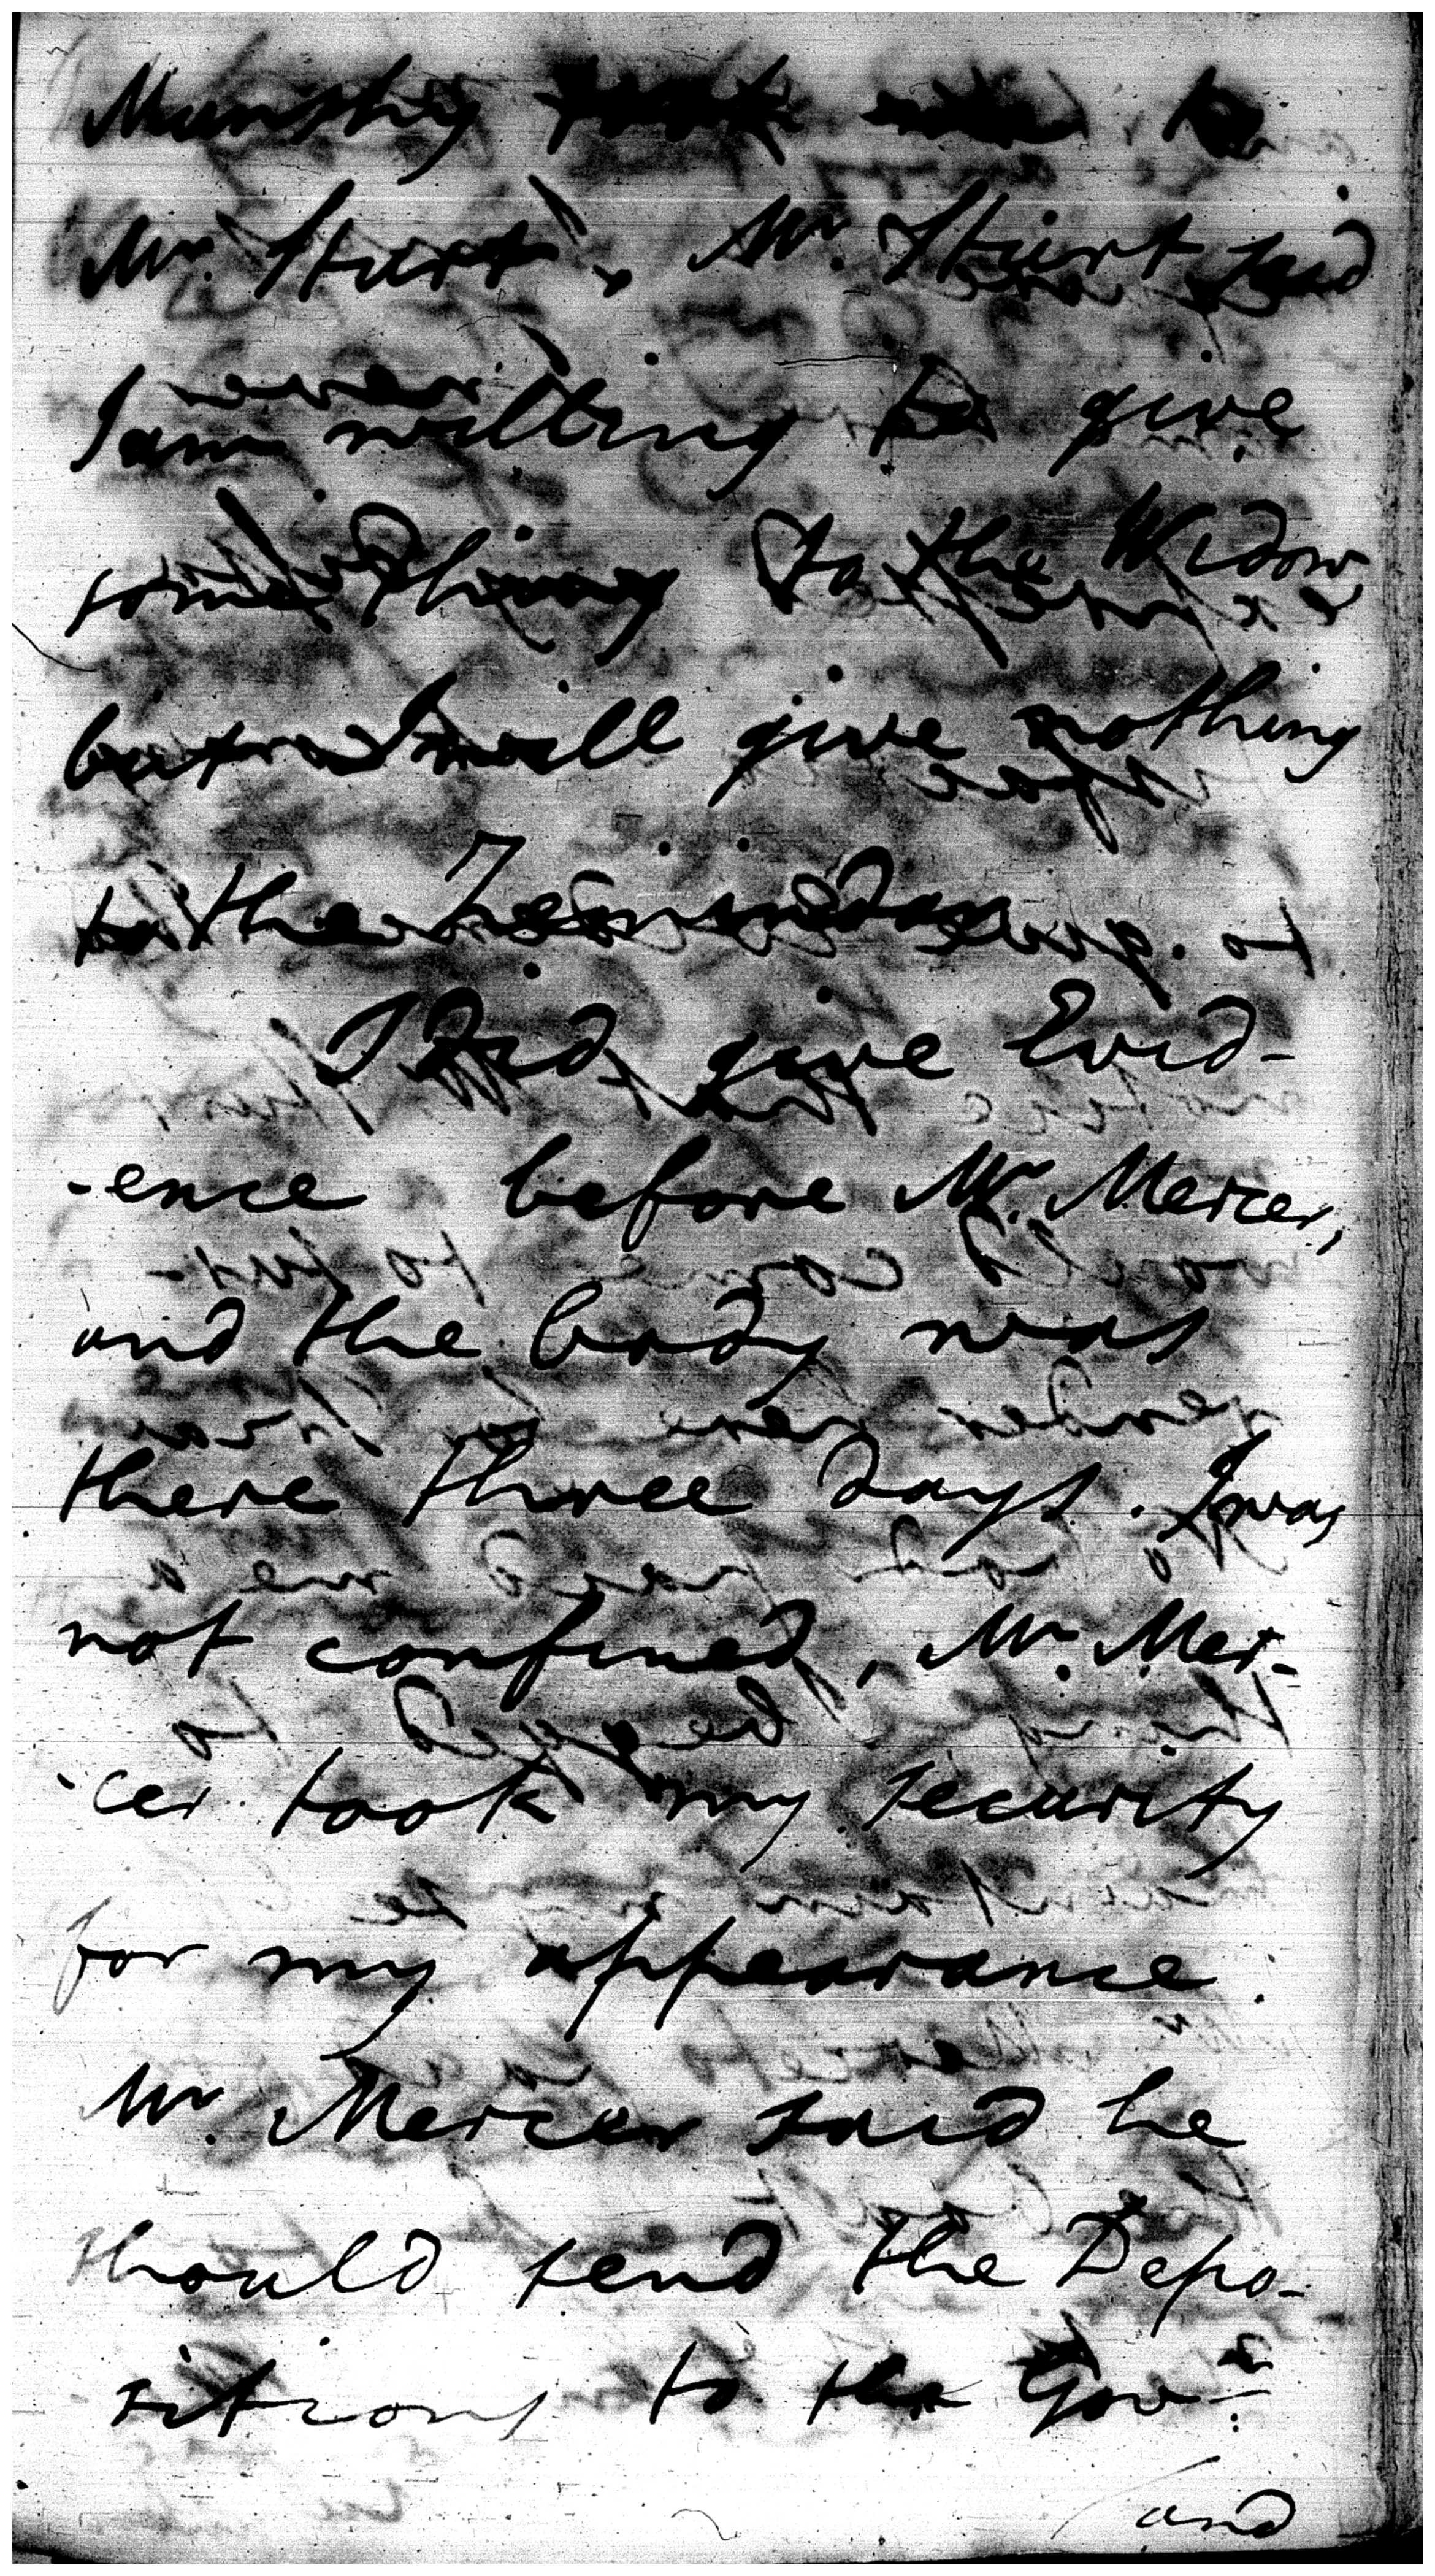 Munshy to
Mr. Sturt, Mr. Sturt said
I am willing to give
something to the Widow
but I will give nothing
to the Zemindar.
I did give Evid-
-ence before Mr. Mercer,
and the body was
there three days. I was
not confined, Mr. Mer-
-cer took my security
for my appearance.
Mr. Mercer said he
should send the Depo-
sitions to the Govr.
and